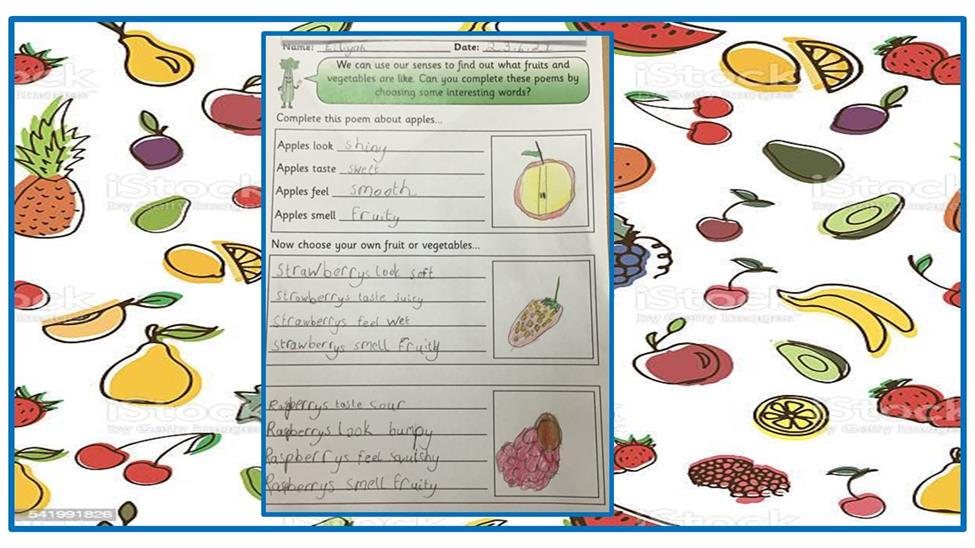 Name: Eiliyah Date: 23.6.21
We can use our senses to find out what fruits and
vegetables are like. Can you complete these poems by
choosing some interesting words?
Complete this poem about apples...
Apples look shiny
Apples taste swelt
Apples feel smooth
Apples smell fruity
Now choose your own fruit or vegetables...
Strawberrys look soft
Strawberrys taste juicy
Strawberrys feel wet
Strawberrys smell fruity
Raspberrys taste sour
Raspberrys look bumpy
Raspberrys feel squishy
Raspberrys smell fruity
iStock
541991826